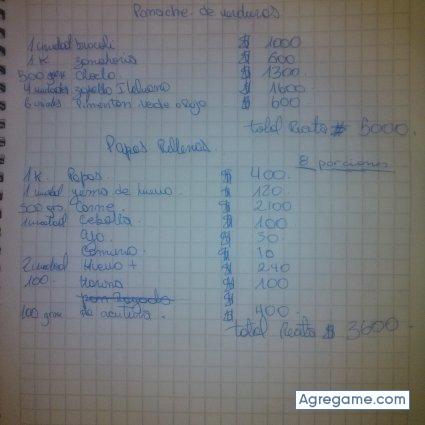 Panache de verduras
1 unidad brocoli $ 1000
1 K. zanahoria $ 600
500 grs Choclo $ 1300
4 unidades zapallo Italiano $ 1600
6 unidades Pimenton verde o rojo $ 600
total Receta $ 5000.
Papas Rellenas.
8 porciones
1 K. Papas $ 400.
1 unidad yema de huevo $ 120
500 grs. Carne $ 2100
1 unidad Cebolla $ 100
ajo $ 30.
Comino. $ 10
2 unidad Huevo + $ 240
100. Harina $ 100
$
100 grs $ 400.
total Receta $ 3600.
Agregame.com